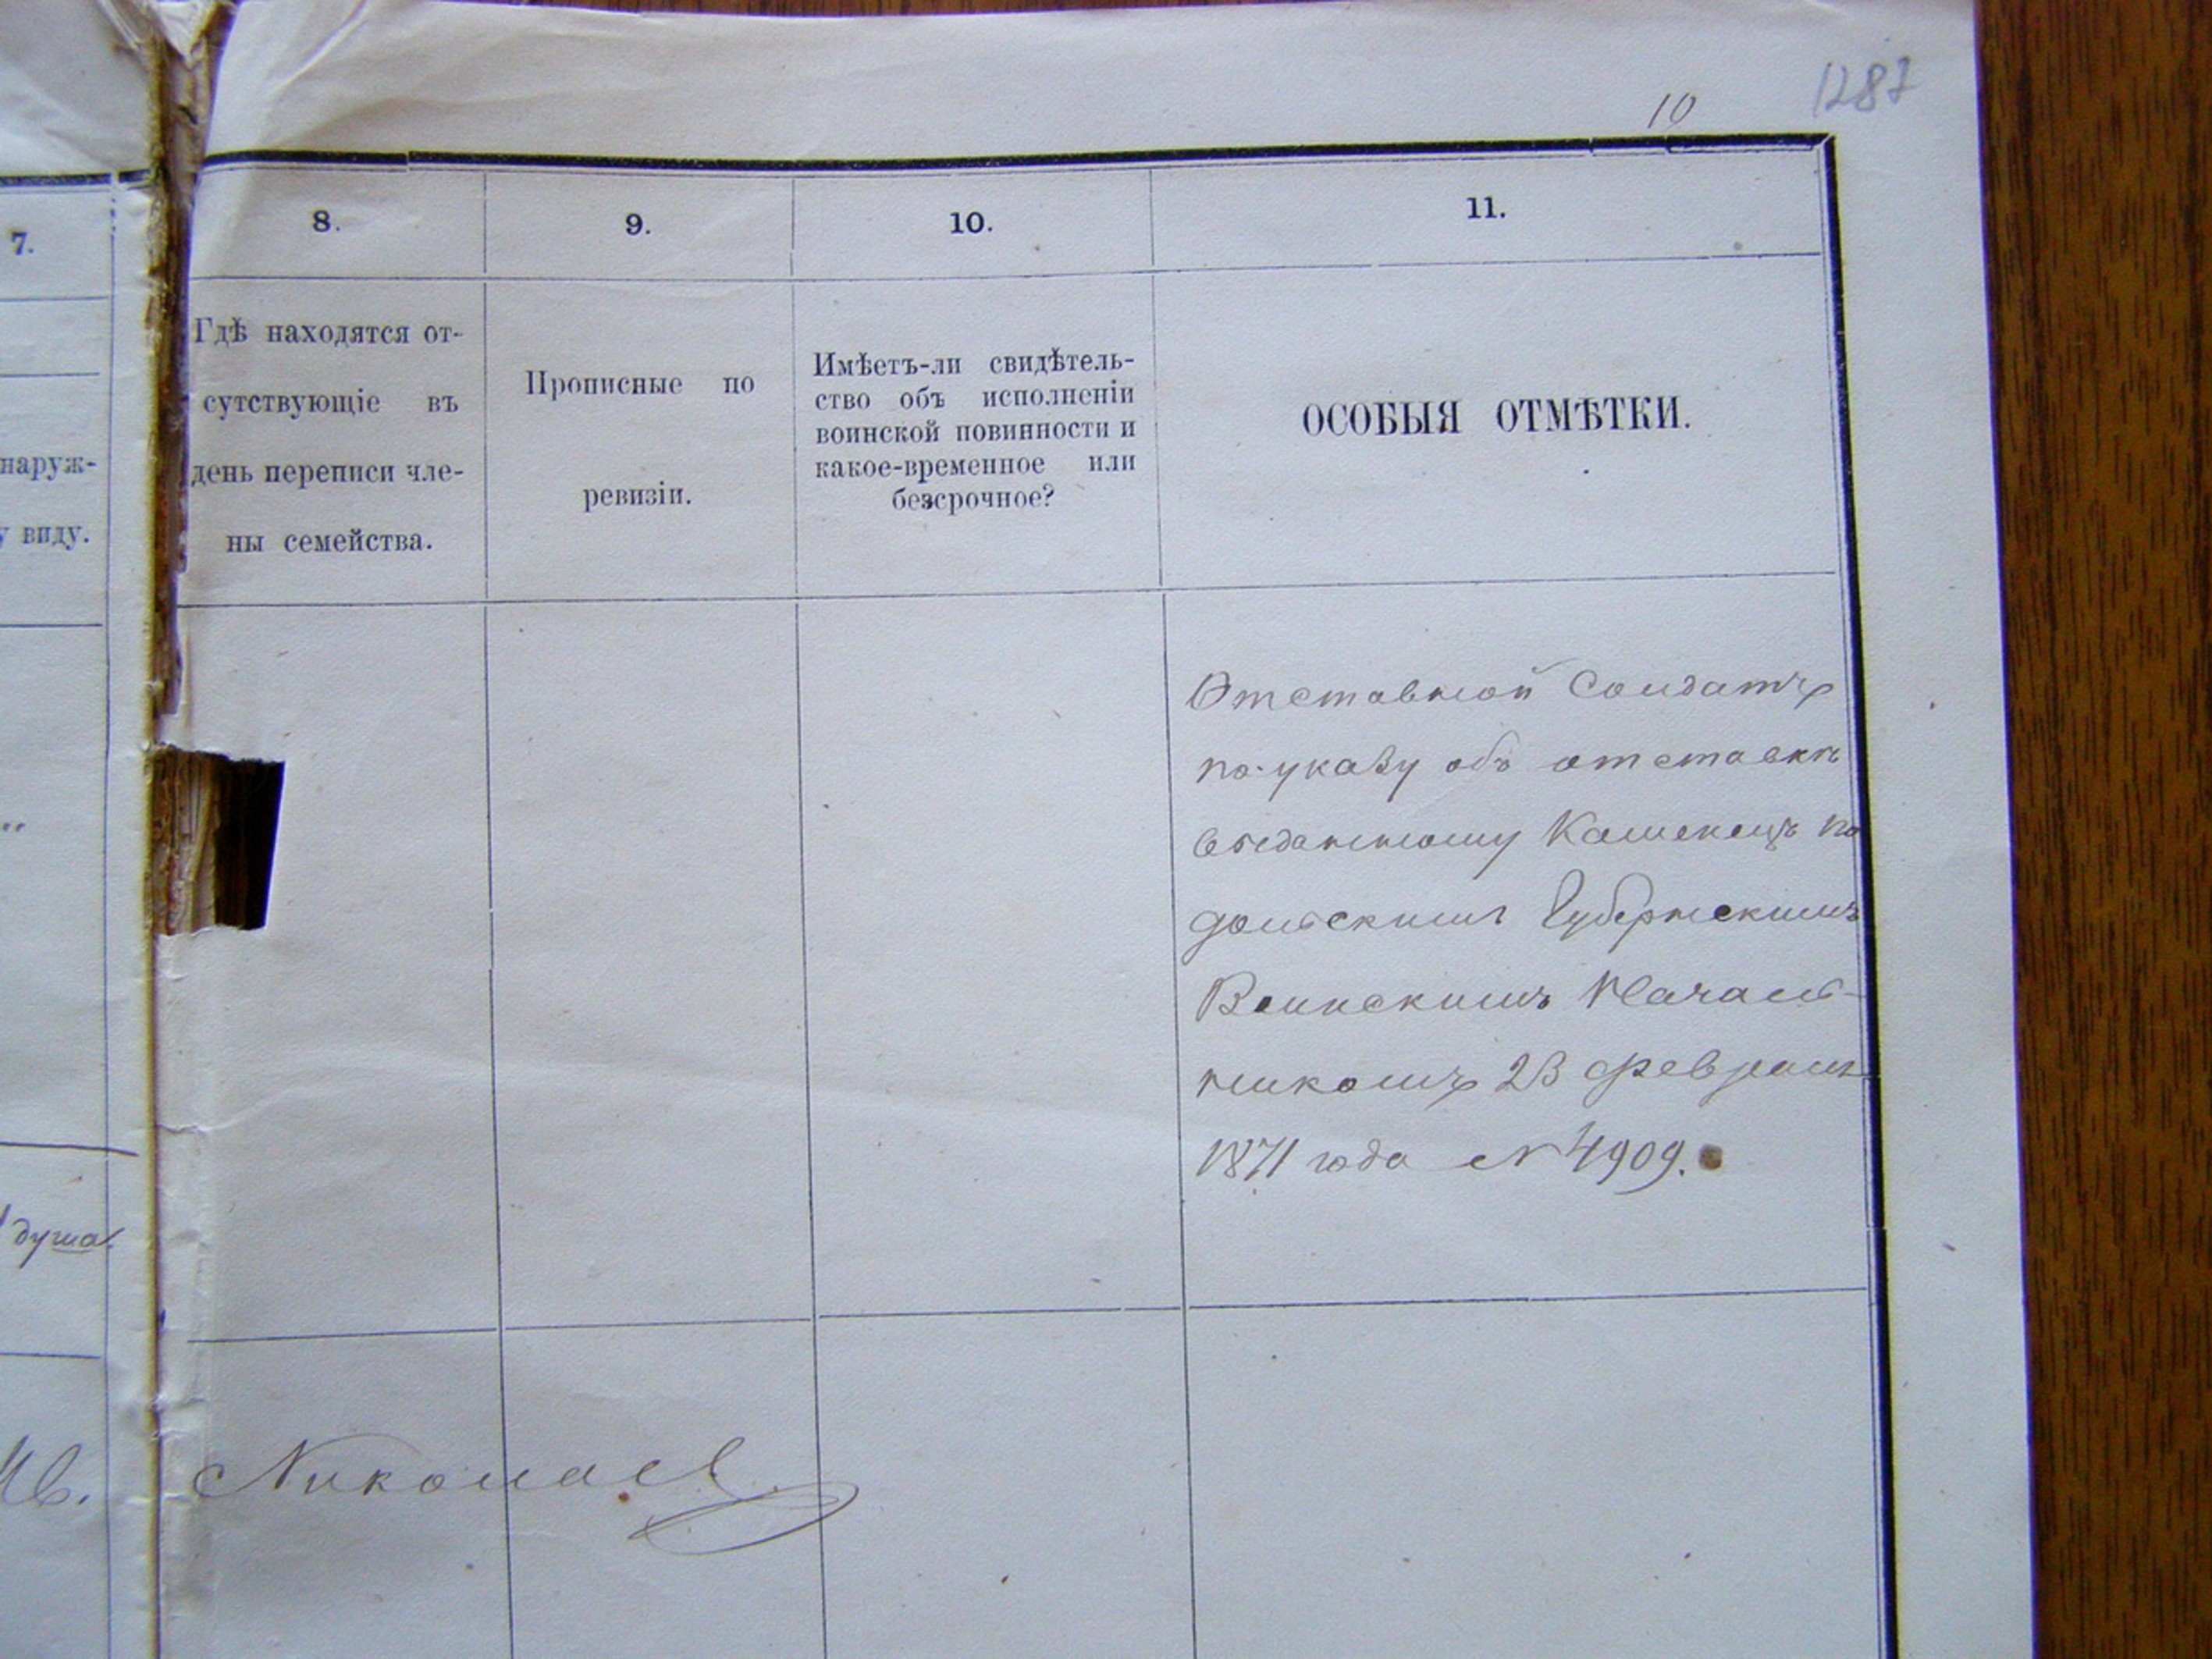 1287
10
7.
8.
9.
10.
11.
наруж-
у виду.
Гдѣ находятся от-
сутствующіе въ
день переписи чле-
ны семейства.
Прописные по
ревизіи.
Имѣетъ-ли свидѣтель-
ство объ исполненіи
воинской повинности и
какое-временное или
безсрочное?
ОСОБЫЯ ОТМѢТКИ.
Отставной Солдатъ
по указу объ отставкѣ
выданному Каменецъ По
дольскимъ Губернскимъ
Воинскимъ Началь-
никомъ 23 февраля
1871 года № 4909.
душа.
Николаев